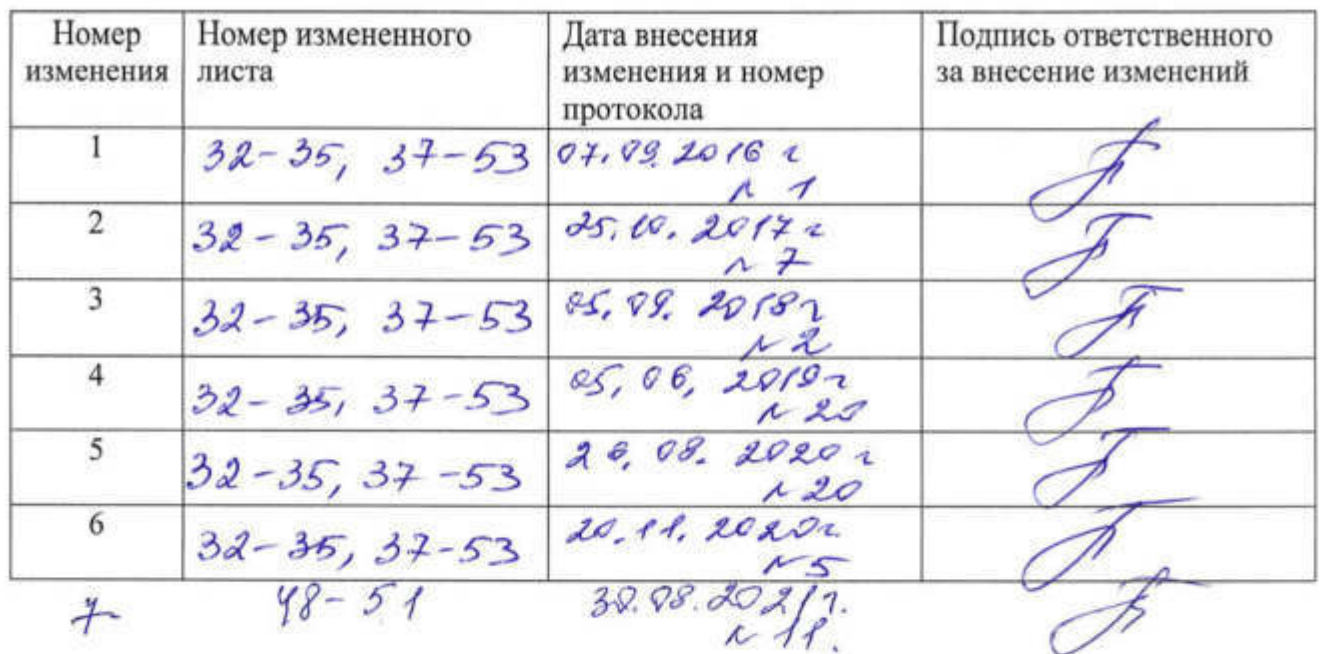 Номер изменения
Номер измененного листа
Дата внесения изменения и номер протокола
Подпись ответственного за внесение изменений
1
32-35, 37-53
07.09.2016 г
№ 1
2
32-35, 37-53
25.10.2017 г
№ 7
3
32-35, 37-53
05.09.2018 г
№ 2
4
32-35, 37-53
05,06,2019 г
№ 20
5
32-35, 37-53
26.08.2020 г
№ 20
6
32-35, 37-53
20.11.2020г.
№ 5
7
48-51
30.08.2021 г.
№ 11.